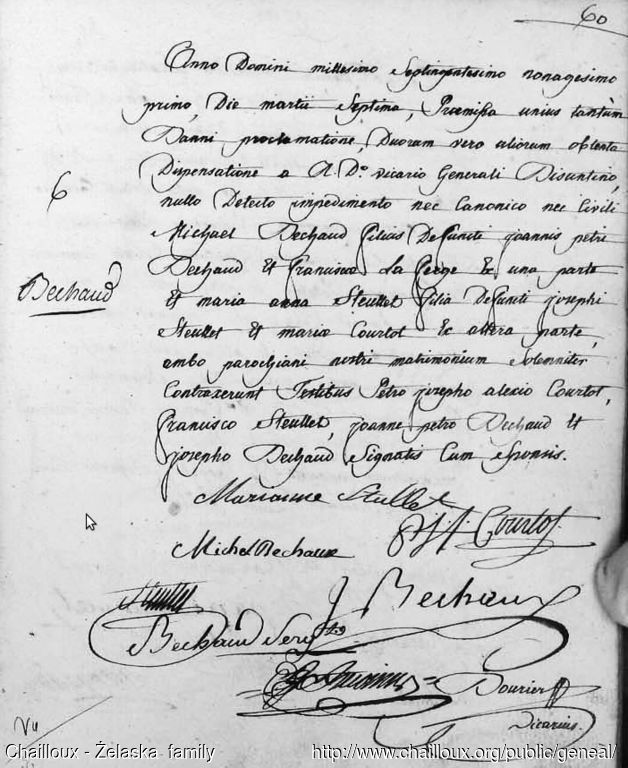 60
Anno Domini millesimo Septingentesimo nonagesimo
primo, Die martii Septima, Præmissa unius tantùm
Banni proclamatione, Duorum vero aliorum obtenta
Dispensatione a R. Do. vicario Generali Bisuntino,
nullo Detecto impedimento nec Canonico nec Civili
6
Michael Bechaud filius Defuncti joannis petri
Bechaud Et franciscæ La ferge Ex una parte
Bechaud
Et maria anna Steullet filia Defuncti josephi
Steullet Et mariæ Courtot Ex altera parte,
ambo parochiani nostri matrimonium solemniter
Contraxerunt Testibus Petro josepho alexio Courtot,
francisco Steullet, joanne petro Bechaud Et
josepho Bechaud Signatis Cum sponsis.
Marianne Stullet
Courtot
Michel Bechaux
J Bechaux
Bechaud
Bourier
vicarius.
Vu
Chailloux - Żelaska family
http://www.chailloux.org/public/geneal/